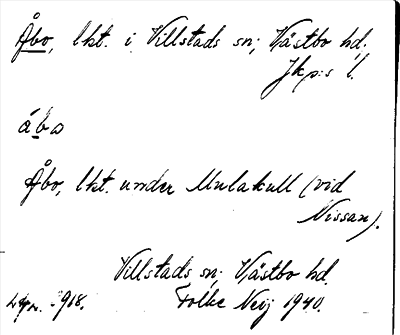 Åbo, lht. i Villstads sn; Västbo hd.
Jkp:s l.
åbo
Åbo, lht. under Mulakull (vid
Nissan).
Villstads sn; Västbo hd.
1918. Folke Neij 1940.